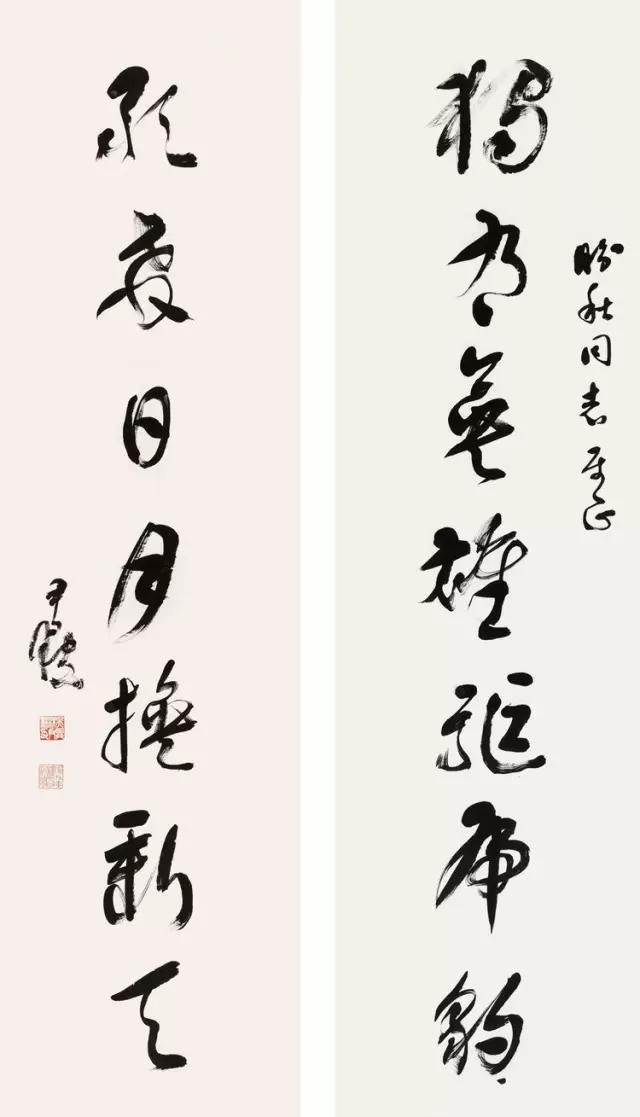 盼秋同志屬正
獨有英雄驅虎豹
敢教日月換新天